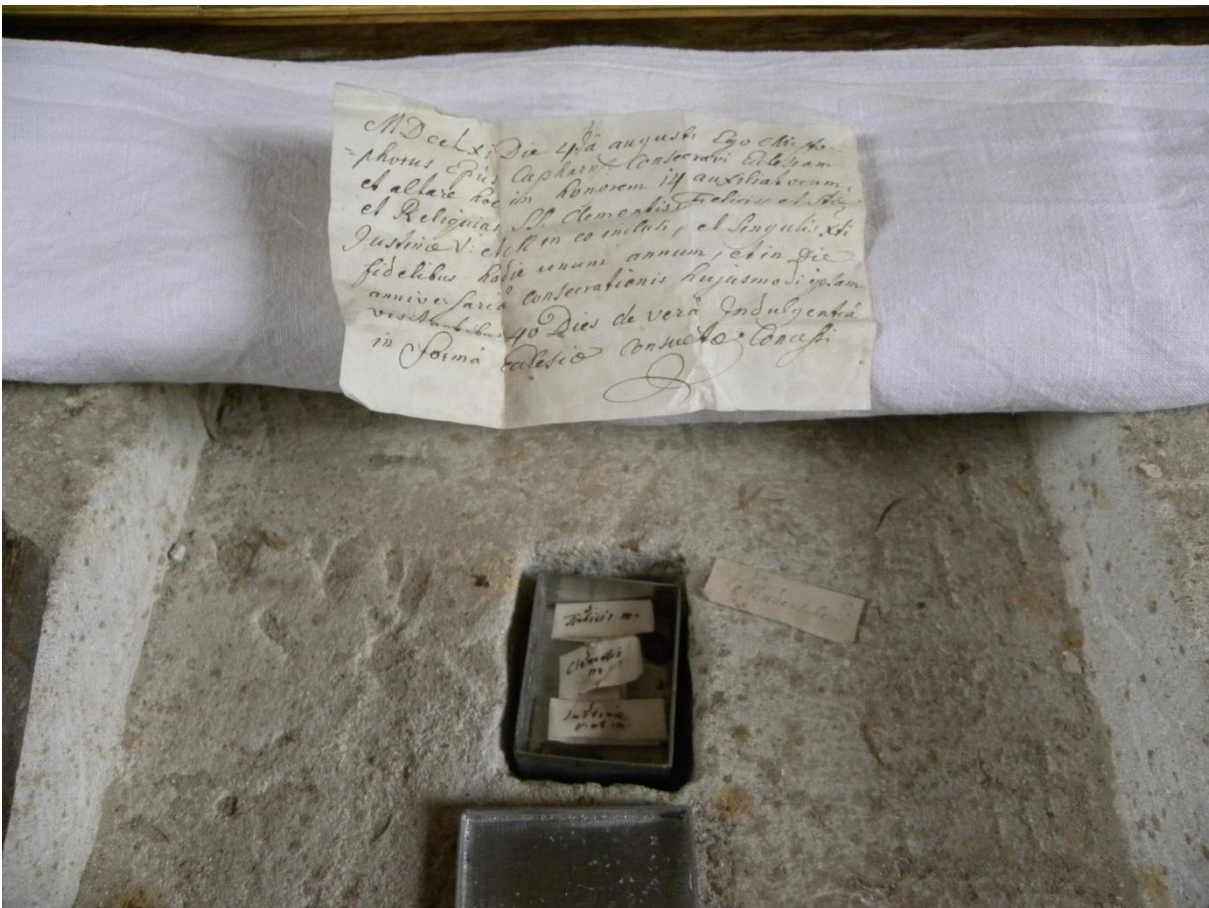 MDccLxi Die 4ta augusti Ego Christo-
=phorus Epus Capharn: Consecravi Eclesiam
et altare hoc in honorem 14 auxiliatorum,
et Reliquias SS. Clementis, Felicis et Stae
Justinae V: et M in eo inclusi, et Singulis Xti
fidelibus hodie unum annum, et in Die
anniversariâ Consecrationis hujusmodi ipsam
visitantibus 40 Dies de verâ Indulgentiâ
in formâ Eclesiae Consuetâ Concessi
m.
Clementis
m
Justinae
V et m.